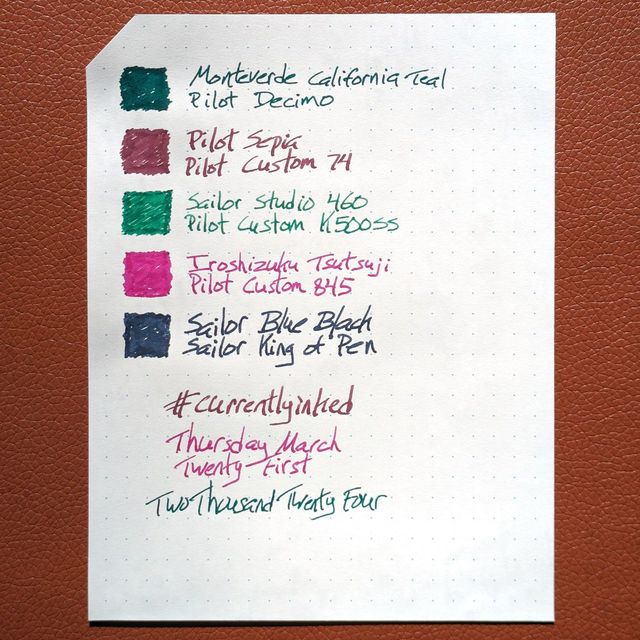 Monteverde California Teal
Pilot Decimo
Pilot Sepia
Pilot Custom 74
Sailor Studio 460
Pilot Custom K500SS
Iroshizuku Tsutsuji
Pilot Custom 845
Sailor Blue Black
Sailor King of Pen
#currentlyinked
Thursday March
Twenty-First
Two Thousand Twenty Four